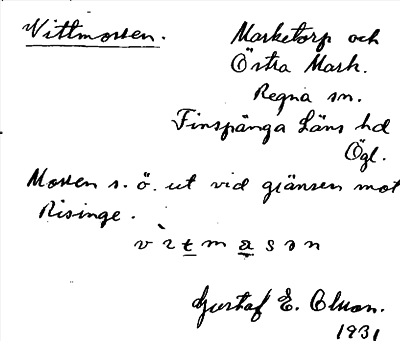 Vittmossen.
Marketorp och
Östra Mark.
Regna sn.
Finspånga Läns hd
Ögl.
Mossen s. ö. ut vid gränsen mot
Risinge.
Gustaf E. Olson.
1931